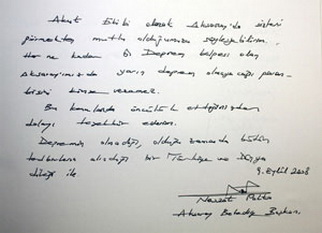 Akut Ekibi olarak Aksaray'da sizleri
görmekten mutlu olduğumuzu söyleyebilirim.
Her ne kadar 5. Deprem bölgesi olan
Aksarayımızda yarın deprem olmayacağı garan-
tisini kimse veremez.
Bu konularda öncülük ettiğinizden
dolayı teşekkür ederim.
Depremin olmadığı, olduğu zamanda bütün
tedbirlerin alındığı bir Türkiye ve Dünya
dileği ile. 9. Eylül 2008
Nevzat Palta
Aksaray Belediye Başkanı